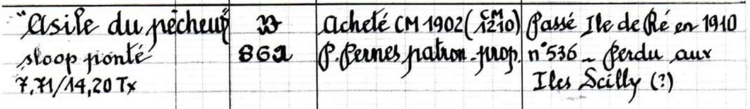 "Asile du pêcheur"
sloop ponté
7,71/14,20 Tx
862
Acheté CM 1902 (CM 1210)
P. Pernes, patron-prop.
Passé Ile de Ré en 1910
n° 536 - perdu aux
Iles Scilly (?)